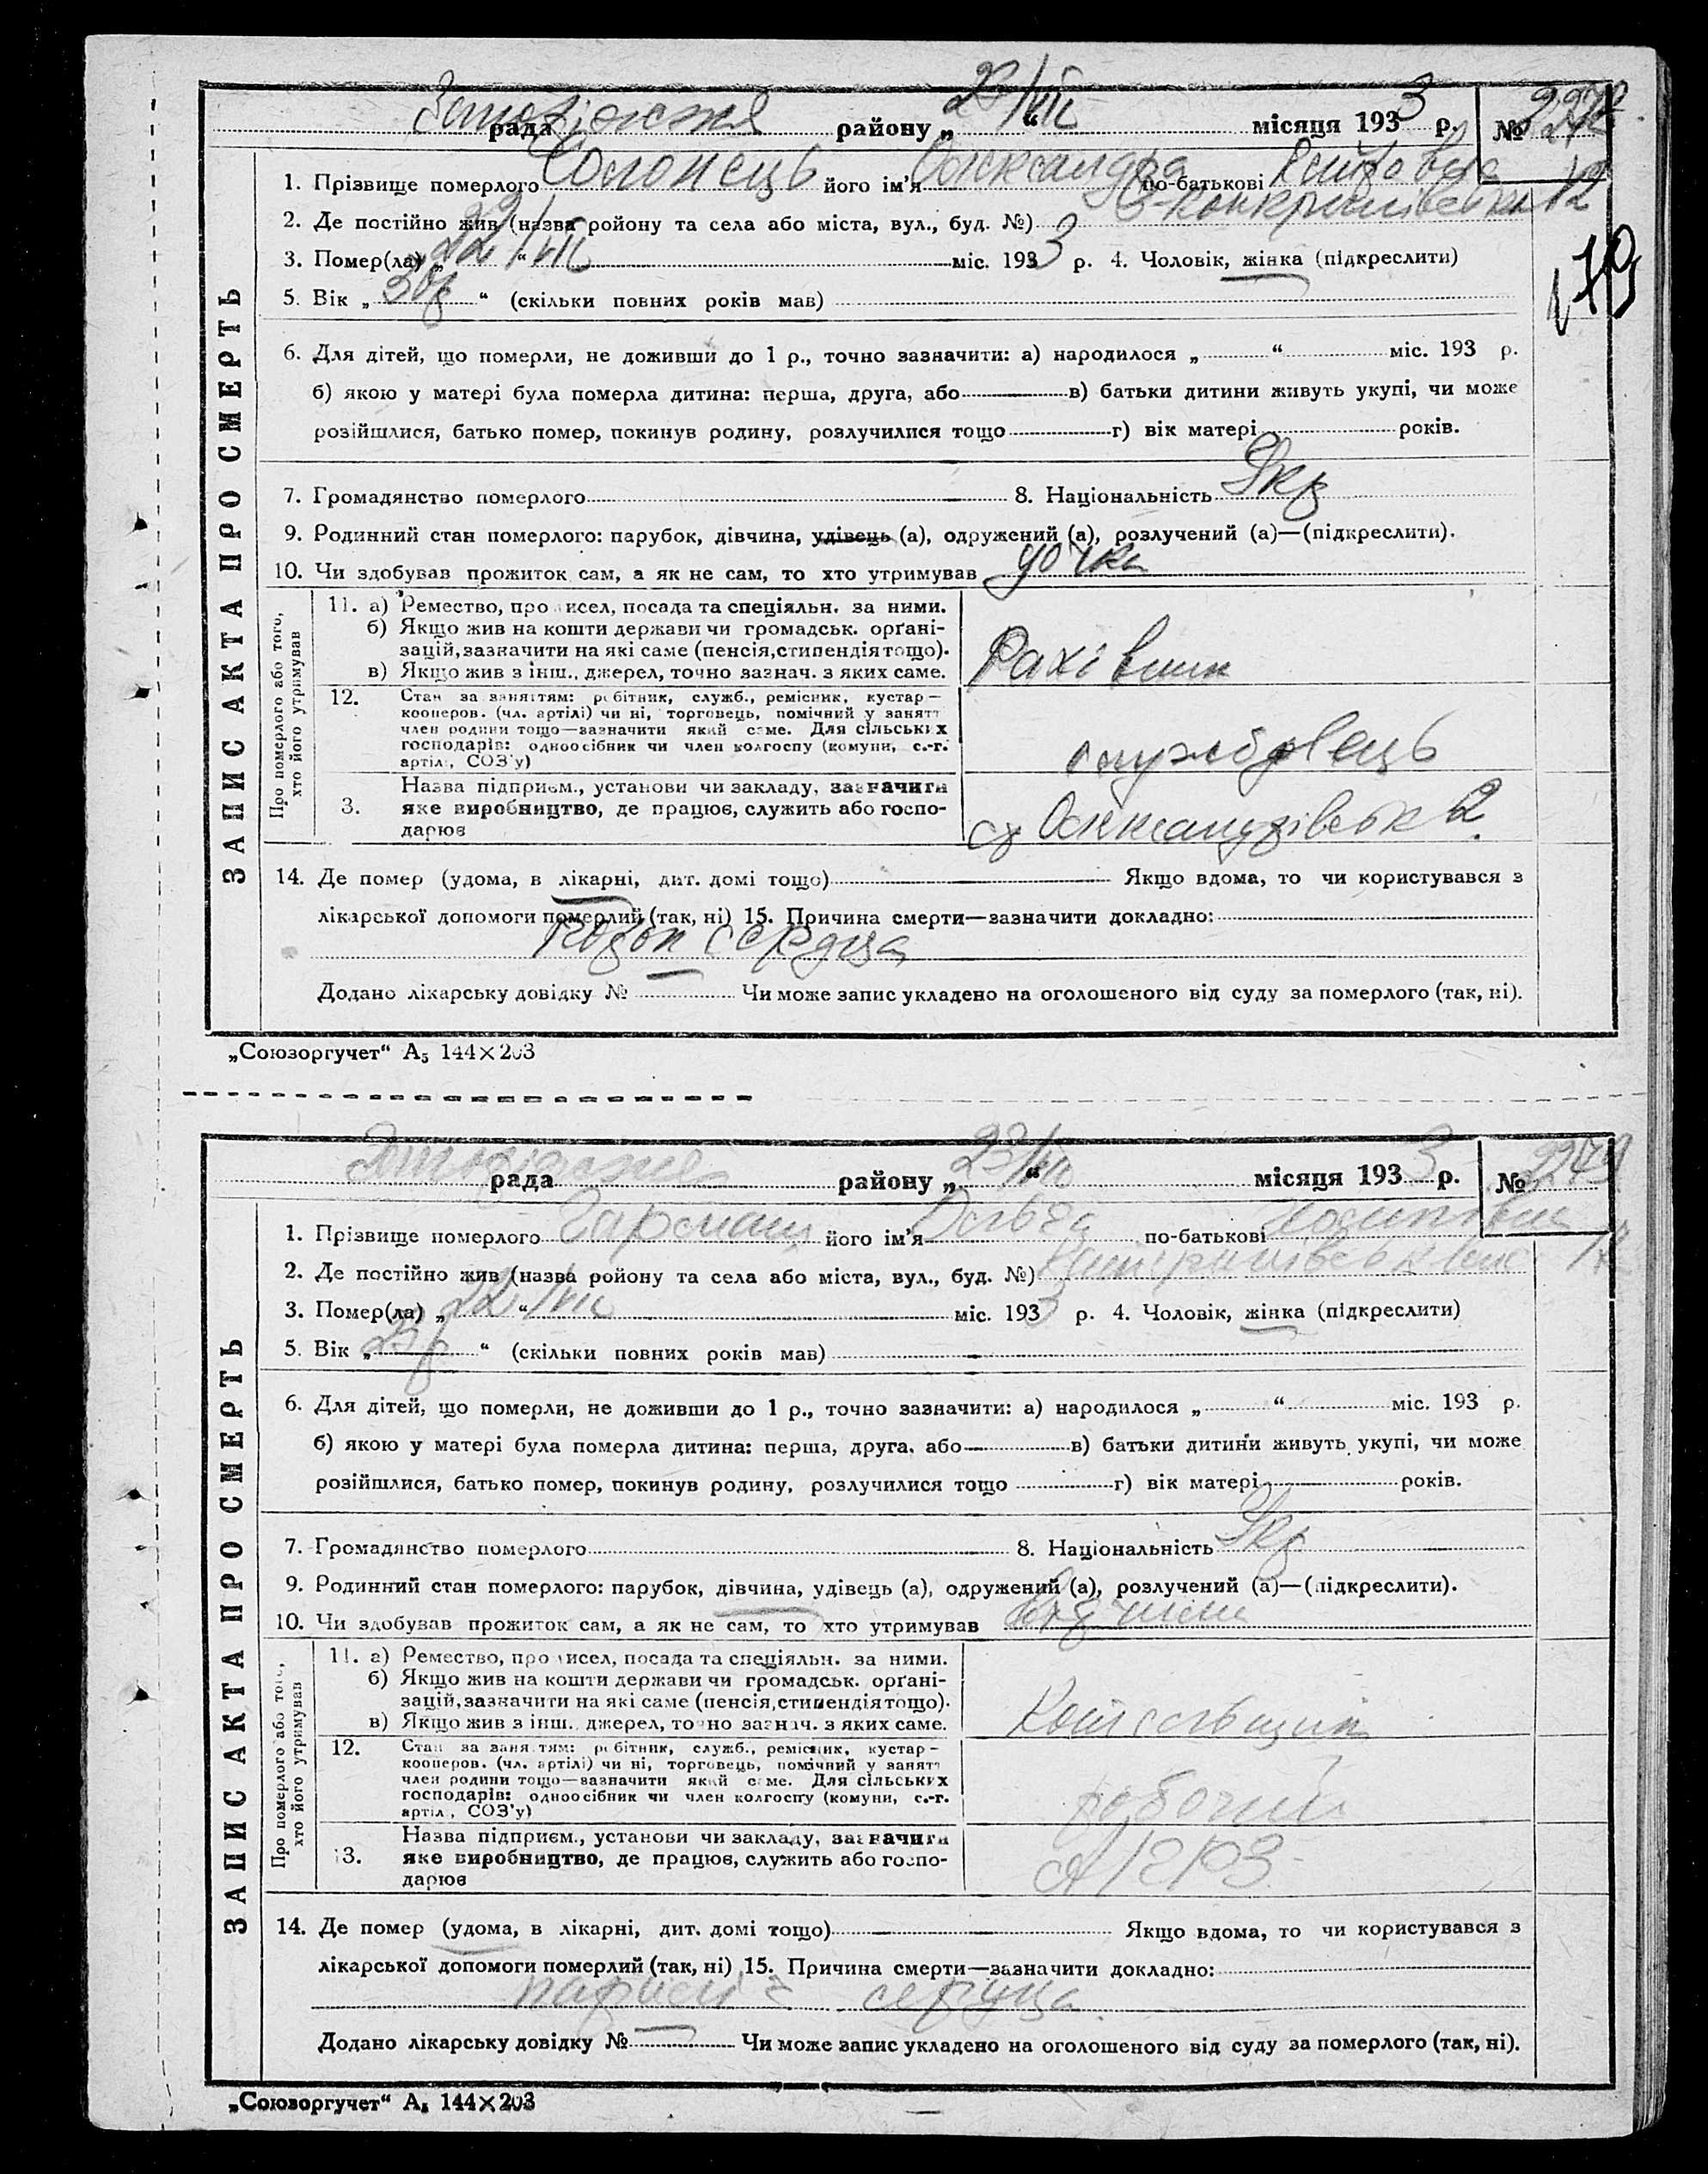 Запоріжжя рада району „23/VII“ місяця 1933 р. №
1. Прізвище померлого Солонець його ім'я Олександра по-батькові
2. Де постійно жив (назва ройону та села або міста, вул., буд. №) 12
3. Помер(ла) „22/VII“ міс. 1933 р. 4. Чоловік, жінка (підкреслити)
5. Вік „50р“ (скільки повних років мав)
6. Для дітей, що померли, не доживши до 1 р., точно зазначити: а) народилося „ “ міс. 193 р.
б) якою у матері була померла дитина: перша, друга, або в) батьки дитини живуть укупі, чи може
розійшлися, батько помер, покинув родину, розлучилися тощо г) вік матері років.
7. Громадянство померлого 8. Національність Укр
9. Родинний стан померлого: парубок, дівчина, удівець (а), одружений (а), розлучений (а)—(підкреслити).
10. Чи здобував прожиток сам, а як не сам, то хто утримував дочка
ЗАПИС АКТА ПРО СМЕРТЬ
Про померлого або того,
хто його утримував
11. а) Ремество, про исел, посада та спеціяльн. за ними.
б) Якщо жив на кошти держави чи громадськ. орґані-
зацій, зазначити на які саме (пенсія, стипендія тощо).
в) Якщо жив з інш., джерел, точно зазнач. з яких саме.
Рахівник
12. Стан за заняттям: робітник, служб., ремісник, кустар—
кооперов. (чл. артілі) чи ні, торговець, помічний у занятт
член родини тощо—зазначити який саме. Для сільських
господарів: одноосібник чи член колгоспу (комуни, с.-г.
артіл., СОЗ'у)
службовець
3. Назва підприєм., установи чи закладу, зазначити
яке виробництво, де працює, служить або госпо-
дарює
ст Олександрівськ 2
14. Де помер (удома, в лікарні, дит. домі тощо) Якщо вдома, то чи користувався з
лікарської допомоги померлий (так, ні) 15. Причина смерти—зазначити докладно:
порок сердца
Додано лікарську довідку № — Чи може запис укладено на оголошеного від суду за померлого (так, ні).
„Союзоргучет“ А₅ 144×203
Запоріжжя рада району „23/VII“ місяця 1933 р. №
1. Прізвище померлого Гармаш його ім'я Ольга по-батькові
2. Де постійно жив (назва ройону та села або міста, вул., буд. №)
3. Помер(ла) „22/VII“ міс. 1933 р. 4. Чоловік, жінка (підкреслити)
5. Вік „ “ (скільки повних років мав)
6. Для дітей, що померли, не доживши до 1 р., точно зазначити: а) народилося „ “ міс. 193 р.
б) якою у матері була померла дитина: перша, друга, або в) батьки дитини живуть укупі, чи може
розійшлися, батько помер, покинув родину, розлучилися тощо г) вік матері років.
7. Громадянство померлого 8. Національність Укр
9. Родинний стан померлого: парубок, дівчина, удівець (а), одружений (а), розлучений (а)—(підкреслити).
10. Чи здобував прожиток сам, а як не сам, то хто утримував
ЗАПИС АКТА ПРО СМЕРТЬ
Про померлого або того,
хто його утримував
11. а) Ремество, про исел, посада та спеціяльн. за ними.
б) Якщо жив на кошти держави чи громадськ. орґані-
зацій, зазначити на які саме (пенсія, стипендія тощо).
в) Якщо жив з інш., джерел, точно зазнач. з яких саме.
12. Стан за заняттям: робітник, служб., ремісник, кустар—
кооперов. (чл. артілі) чи ні, торговець, помічний у занятт
член родини тощо—зазначити який саме. Для сільських
господарів: одноосібник чи член колгоспу (комуни, с.-г.
артіл., СОЗ'у)
робочий
3. Назва підприєм., установи чи закладу, зазначити
яке виробництво, де працює, служить або госпо-
дарює
14. Де помер (удома, в лікарні, дит. домі тощо) Якщо вдома, то чи користувався з
лікарської допомоги померлий (так, ні) 15. Причина смерти—зазначити докладно:
сердца
Додано лікарську довідку № — Чи може запис укладено на оголошеного від суду за померлого (так, ні).
„Союзоргучет“ А₅ 144×203